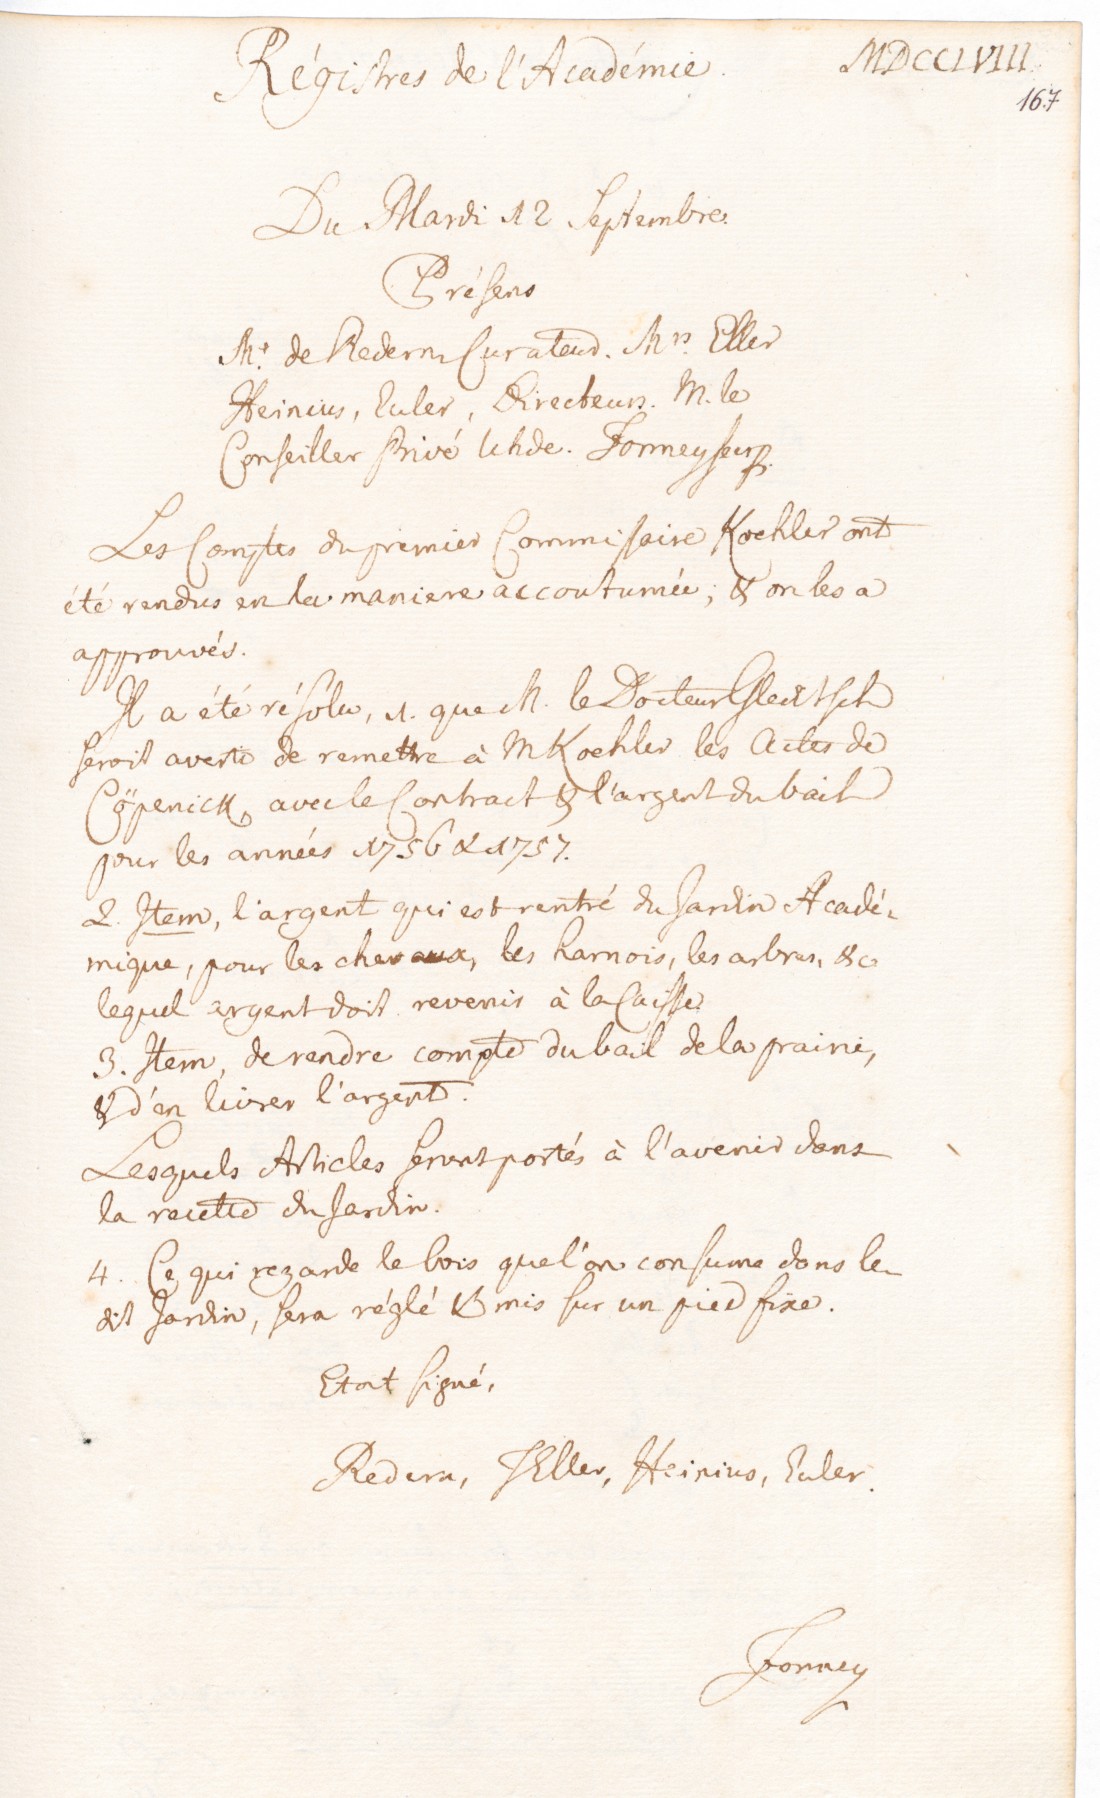 Régistres de l'Académie.
MDCCLVIII.
167
Du Mardi 12 Septembre.
Présens
Mr. de Redern Curateur. Mrs. Eller
Heinius, Euler, Directeurs. M. le
Conseiller Privé Uhde. Formey secr.
Les Comptes du premier Commissaire Koehler ont
été rendus en la maniere accoutumée; & on les a
approuvés.
Il a été résolu, 1. que M. le Docteur Gleditsch
seroit averti de remettre à M Koehler les Actes de
Cöpenick, avec le Contract & l'argent du bail
pour les années 1756 & 1757.
2. Item, l'argent qui est rentré du Jardin Acadé-
mique, pour les chevaux, les harnois, les arbres, &c
lequel argent doit revenir à la Caisse.
3. Item, de rendre compte du bail de la prairie,
& d'en livrer l'argent.
Lesquels Articles seront portés à l'avenir dans
la recette du Jardin.
4. Ce qui regarde le bois que l'on consume dans le
dit Jardin, sera réglé & mis sur un pied fixe.
Etoit signé,
Redern, Eller, Heinius, Euler.
Formey